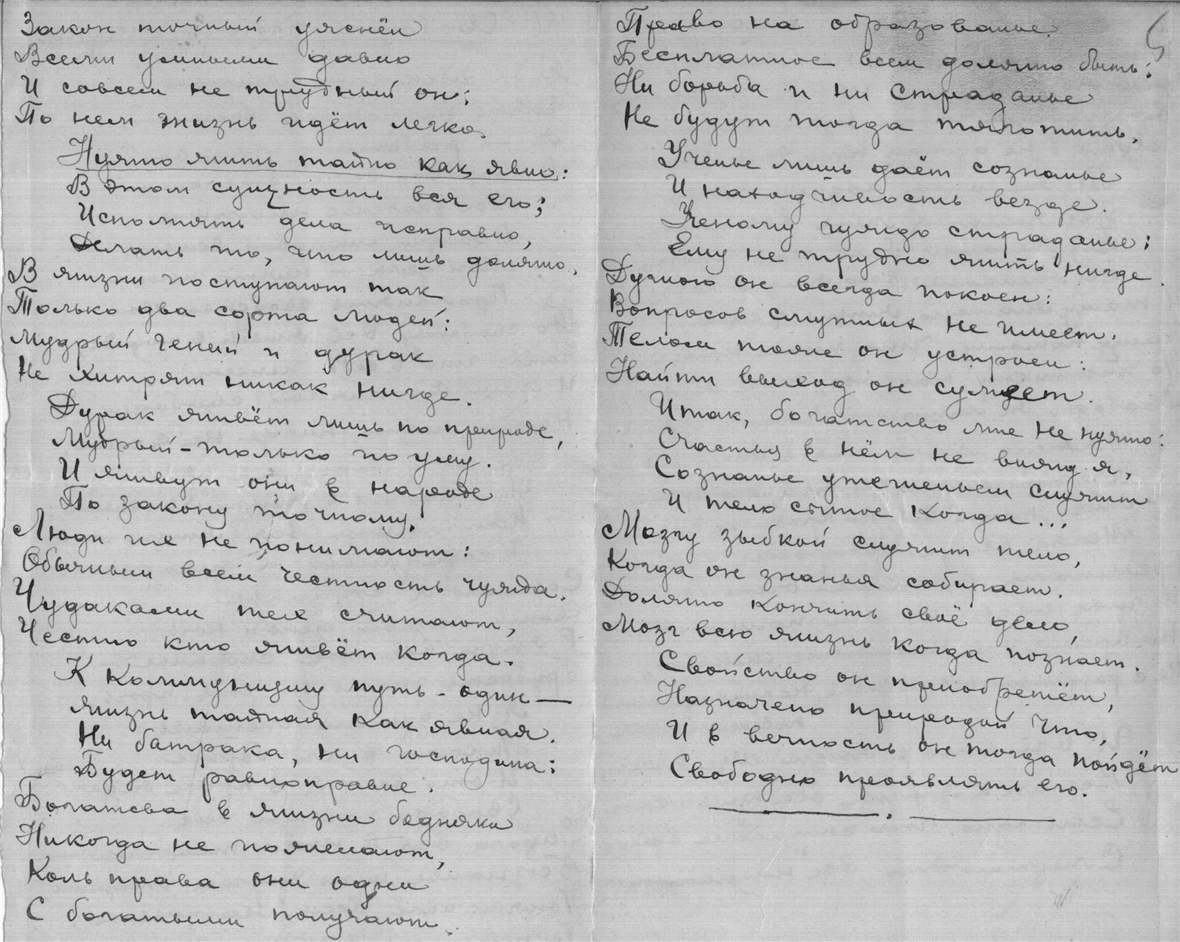 Закон точный уяснён
Всеми умными давно
И совсем не трудный он:
По нем жизнь идёт легко.
Нужно жить тайно как явно:
В этом сущность вся его;
Исполнять дела исправно,
Делать то, что лишь должно.
В жизни поступают так
Только два сорта людей:
Мудрый гений и дурак
Не хитрят никак нигде.
Дурак живёт лишь по природе,
Мудрый - только по уму.
И живут они в народе
По закону точному.
Люди их не понимают:
Обычным всем честность чужда.
Чудаками тех считают,
Честно кто живёт когда.
К Коммунизму путь - один —
Жизнь тайная как явная.
Ни батрака, ни господина:
Будет равноправие.
Богатсва в жизни бедняки
Никогда не пожелают,
Коль права они одни
С богатыми получают.
Право на образованье
Бесплатное всем должно быть:
Ни борьба и ни страданье
Не будут тогда тяготить.
Ученье лишь даёт сознанье
И находчивость везде.
Ученому чуждо страданье;
Ему не трудно жить нигде.
Душою он всегда покоен:
Вопросов смутных не имеет.
Телом тоже он устроен:
Найти выход он сумеет.
Итак, богатство мне не нужно:
Счастья в нём не вижу я,
Сознанье утешеньем служит
И тело сытое когда...
Мозгу зыбкой служит тело,
Когда он знанья собирает.
Должно кончить своё дело,
Мозг всю жизнь когда познает.
Свойство он приобретёт,
Назначено природой что,
И в вечность он тогда пойдёт
Свободно проявлять его.